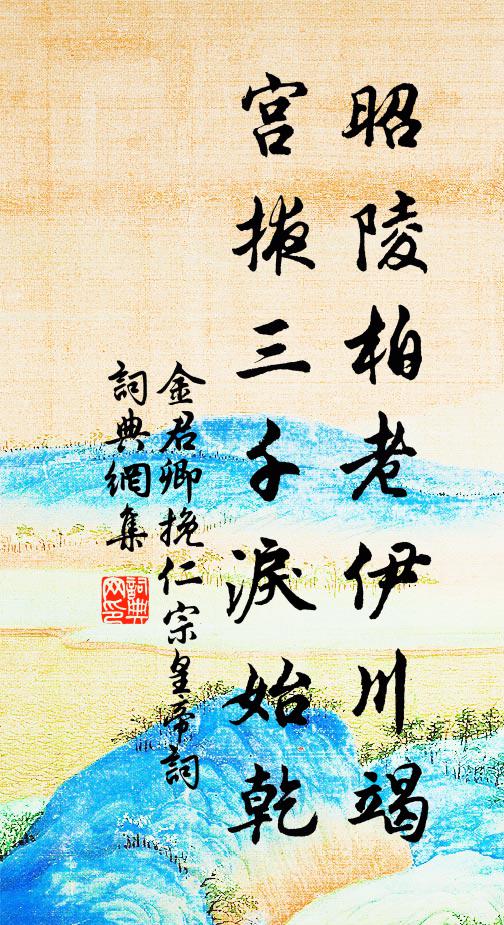 昭陵柏老伊川竭
宮掖三千淚始乾
金君卿挽仁宗皇帝詞
詞典網集